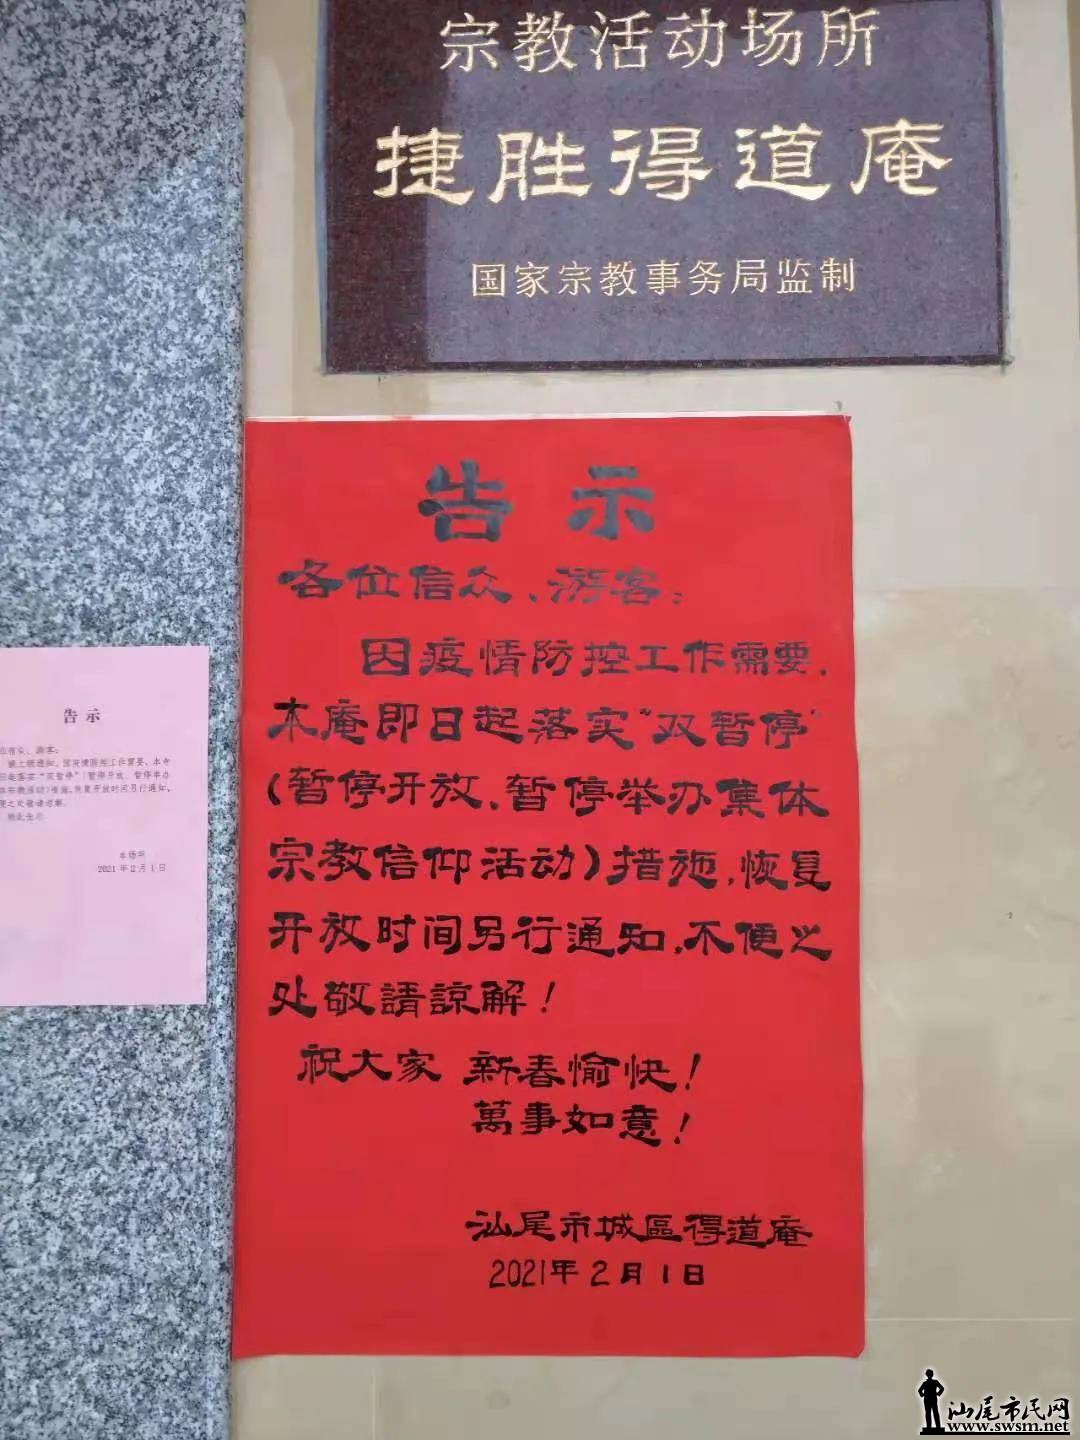 宗教活动场所
捷胜得道庵
国家宗教事务局监制
告示
各位信众、游客：
因疫情防控工作需要，
本庵即日起落实“双暂停”
（暂停开放、暂停举办集体
宗教信仰活动）措施，恢复
开放时间另行通知，不便之
处敬請諒解！
祝大家 新春愉快！
萬事如意！
汕尾市城區得道庵
2021年2月1日
告示
位信众、游客：
接上级通知，因疫情防控工作需要，本寺
日起落实“双暂停”（暂停开放、暂停举办
体宗教活动）措施，恢复开放时间另行通知，
便之处敬请谅解。
特此告示
本场所
2021年2月1日
汕尾市民网
www.swsm.net